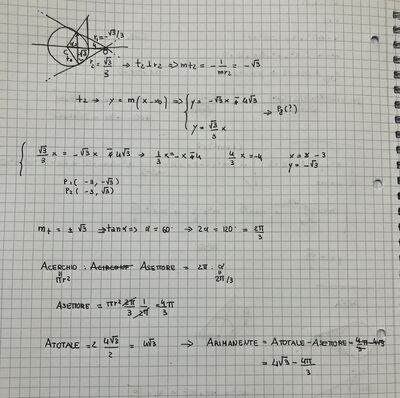 r₁ = -√3/3
C
O
r₂ = √3/3 → t₂ ⊥ r₂ => mt₂ = - 1/mr₂ = -√3
t₂ → y = m(x-x₀) => { y = -√3x ∓ 4√3
y = √3/3 x → P₂(?)
{ √3/3 x = -√3x ∓ 4√3 → 1/3 x = -x ∓ 4 4/3 x = -4 x = -3
y = -√3
P₁(-3, -√3)
P₂(-3, √3)
mt = ± √3 → tanα => α = 60° → 2α = 120° = 2π/3
ACERCHIO : ASETTORE = 2π : α
πr² 2π/3
ASETTORE = πr² 2π/3 1/2π = 4π/3
ATOTALE = 2 4√3/2 = 4√3 → ARIMANENTE = ATOTALE - ASETTORE =
= 4√3 - 4π/3